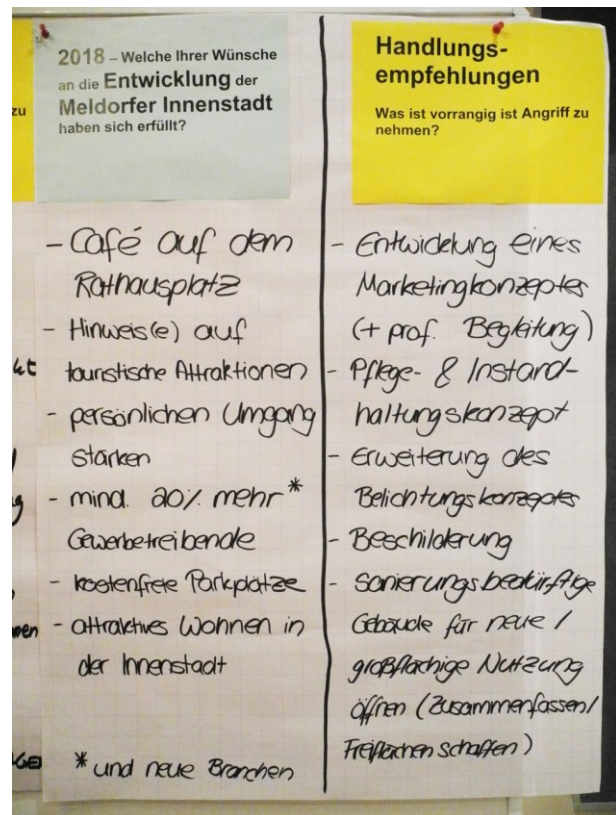 zu
2018 – Welche Ihrer Wünsche
an die Entwicklung der
Meldorfer Innenstadt
haben sich erfüllt?
- Café auf dem
Rathausplatz
- Hinweis(e) auf
touristische Attraktionen
- persönlichen Umgang
stärken
- mind. 20% mehr *
Gewerbetreibende
- kostenfreie Parkplätze
- attraktives Wohnen in
der Innenstadt
* und neue Branchen
Handlungs-
empfehlungen
Was ist vorrangig ist Angriff zu
nehmen?
- Entwicklung eines
Marketingkonzeptes
(+ prof. Begleitung)
- Pflege- & Instand-
haltungskonzept
- Erweiterung des
Belichtungskonzeptes
- Beschilderung
- sanierungsbedürftige
Gebäude für neue /
großflächige Nutzung
öffnen (Zusammenfassen /
Freiflächen schaffen)